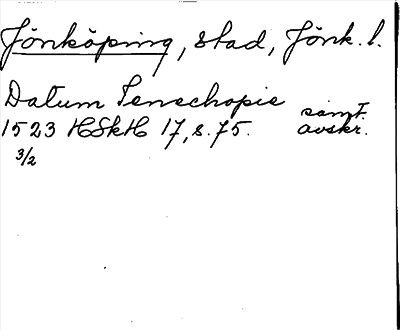 Jönköping, stad, Jönk. l.
Datum Jenechopie
1523 HSkH 17, s. 75. samt. avskr.
3/2